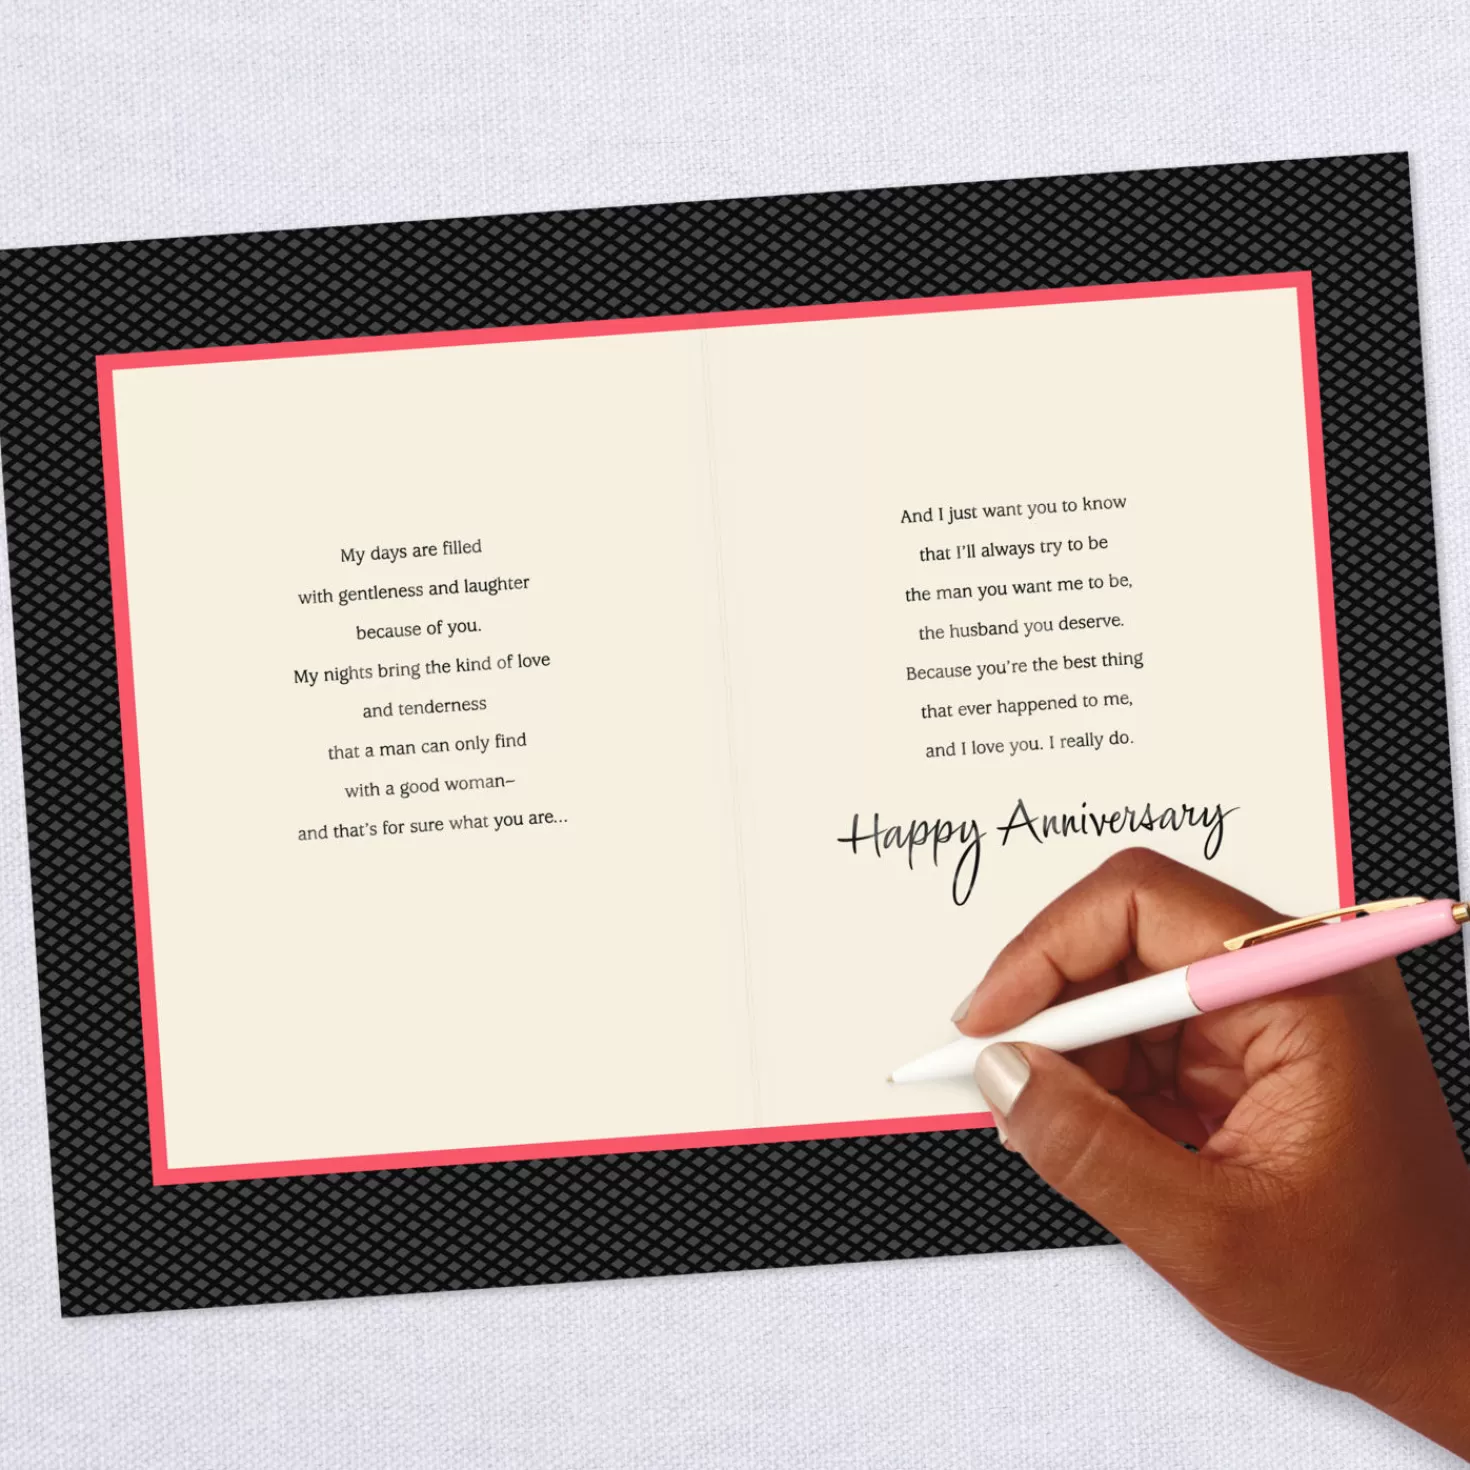 My days are filled
with gentleness and laughter
because of you.
My nights bring the kind of love
and tenderness
that a man can only find
with a good woman–
and that's for sure what you are...
And I just want you to know
that I'll always try to be
the man you want me to be,
the husband you deserve.
Because you're the best thing
that ever happened to me,
and I love you. I really do.
Happy Anniversary